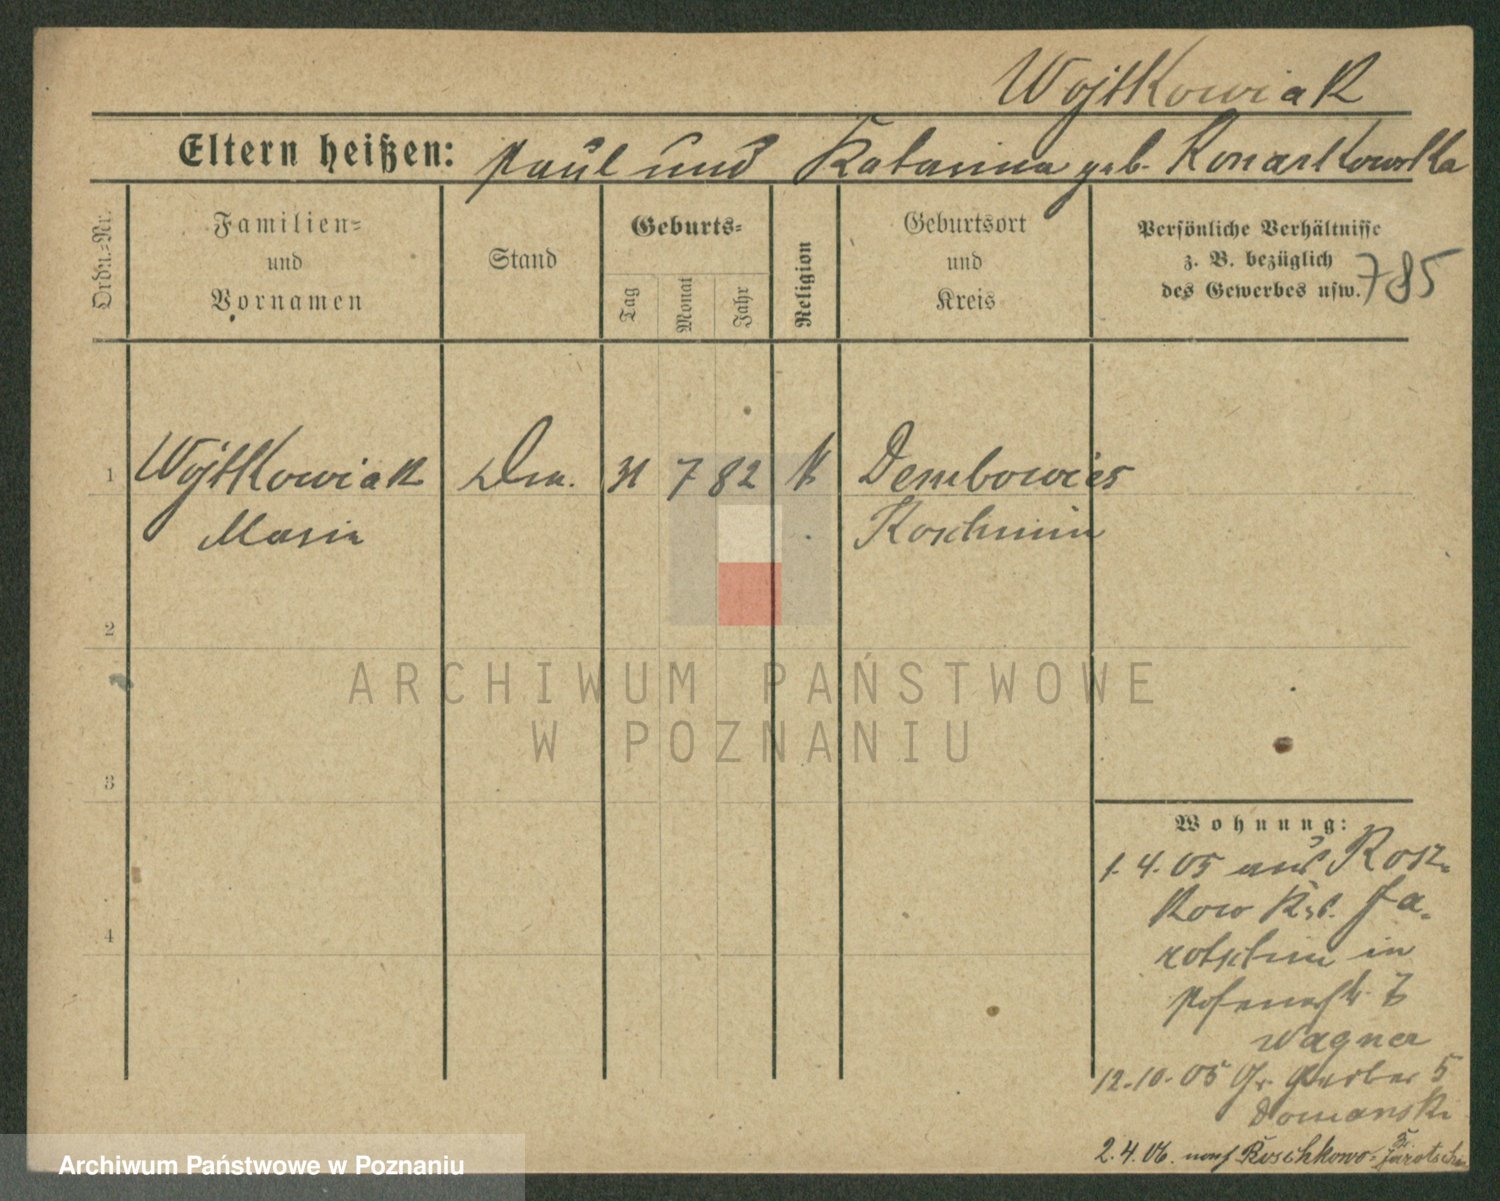 Wojtkowiak
Eltern heißen: Paul und Katarina geb. Konarkowska
Ordn.=Nr.
Familien=
und
Vornamen
Stand
Geburts=
Tag
Monat
Jahr
Religion
Geburtsort
und
Kreis
Persönliche Verhältnisse
z. B. bezüglich
des Gewerbes usw.
785
1 Wojtkowiak 31 7 82 k Dembowies
Maria Koschmin
2
3
4
Wohnung:
1.4.05 aus Rosz-
kow Krs. Ja-
rotschin in
Posenerstr. 7
Wagner
12.10.05 Gr. Gerber 5
Domanski
2.4.06. nach Roschkowo Jarotschin
ARCHIWUM PAŃSTWOWE
W POZNANIU
Archiwum Państwowe w Poznaniu